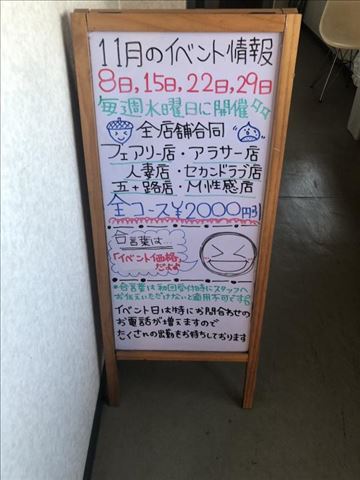 11月のイベント情報
8日,15日,22日,29日
毎週水曜日に開催
全店舗合同
フェアリー店・アラサー店
人妻店・セカンドラブ店
五十路店・M性感店
全コース¥2000円引
合言葉は
「イベント価格」
だよぉ
*合言葉は初回受付時にスタッフへ
お伝えいただけないと適用不可です
イベント日は特にお問合わせの
お電話が増えますので
たくさんの出勤をお待ちしております